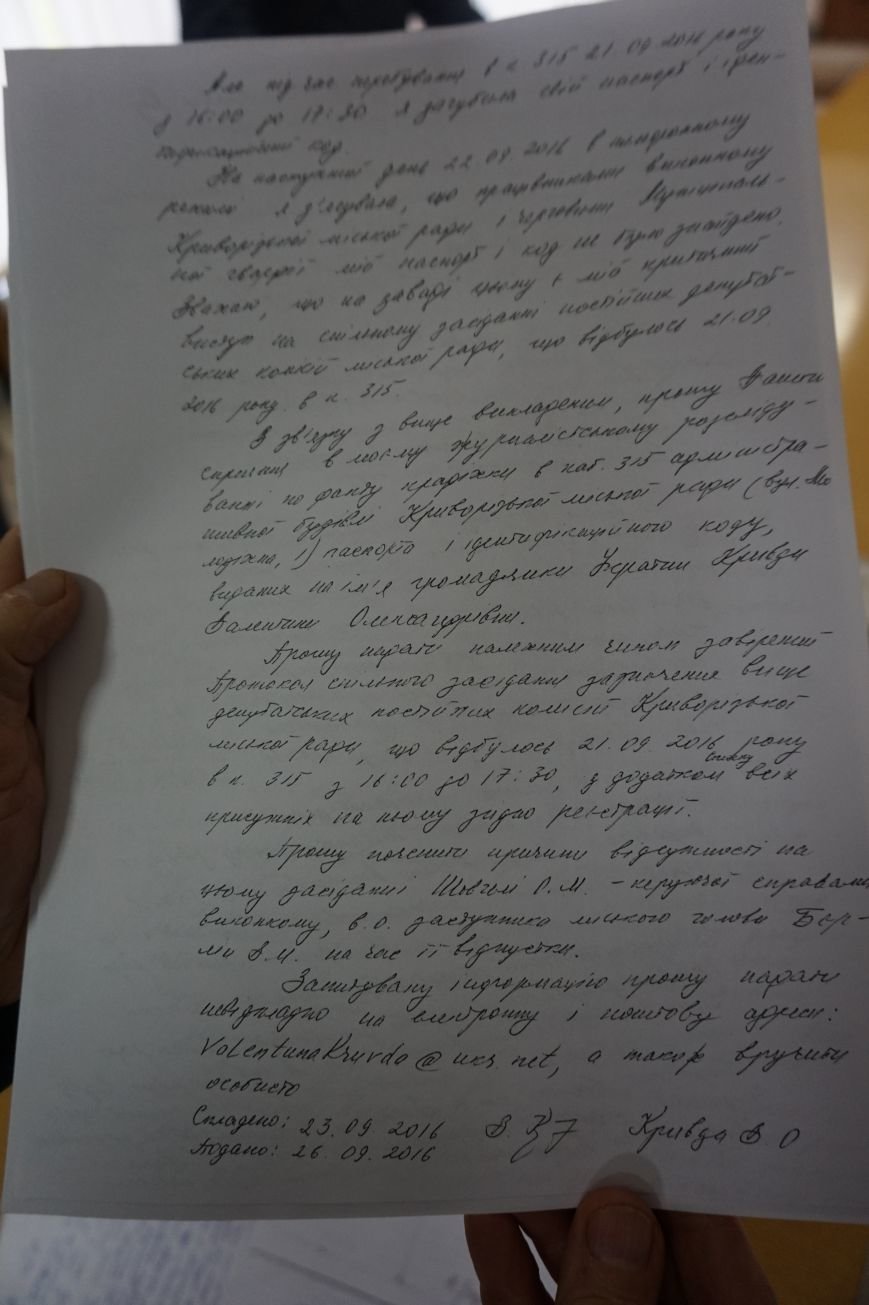 Але під час перебування в к. 315 21.09.2016 року
з 16:00 до 17:30 я загубила свій паспорт і іден-
тифікаційний код.
На наступний день 22.09.2016 в телефонному
режимі я з'ясувала, що працівниками виконкому
Криворізької міської ради і черговими Муніципаль-
ної гвардії мій паспорт і код не було знайдено.
Вважаю, що на заваді цьому є мій критичний
виступ на спільному засіданні постійних депутат-
ських комісій міської ради, що відбулось 21.09.
2016 року в к. 315.
В зв'язку з вище викладеним, прошу Вашого
сприяння в моєму журналістському розсліду-
ванні по факту крадіжки в каб. 315 адміністра-
тивної будівлі Криворізької міської ради (вул. Мо
лодіжна, 1) паспорта і ідентифікаційного коду,
виданих на ім'я громадянки України Кривди
Валентини Олександрівни.
Прошу надати належним чином завірений
Протокол спільного засідання зазначених вище
депутатських постійних комісій Криворізької
міської ради, що відбулось 21.09.2016 року
в к. 315 з 16:00 до 17:30, з додатком списку всіх
присутніх на ньому згідно реєстрації.
Прошу пояснити причини відсутності на
цьому засіданні О.М. - керуючої справами
виконкому, в.о. заступника міського голови
В.М. на час її відпустки.
Запитувану інформацію прошу надати
невідкладно на електронну і поштову адреси:
ValentunaKruvda@ukr.net, а також вручити
особисто
Складено: 23.09.2016 Кривда В.О
Подано: 26.09.2016